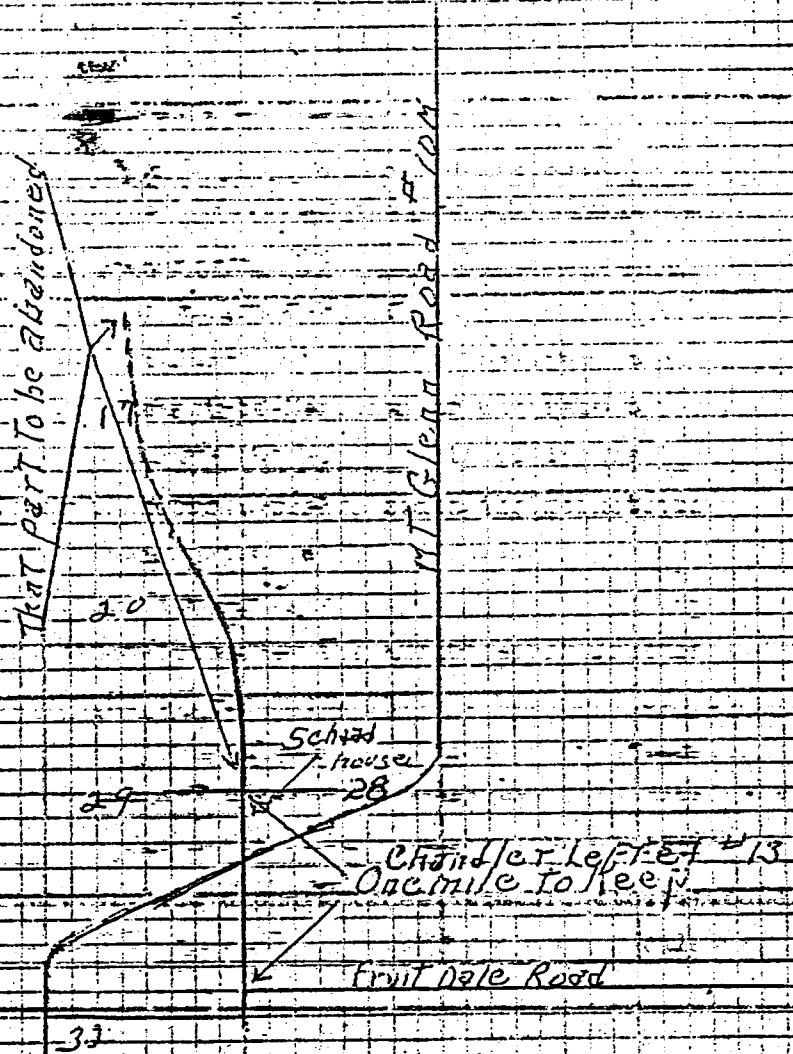 That part To be abandoned
MT Glenn Road # 10M
17
20
School
house
29
28
Chandler #13
One mile To Keep
Fruit Dale Road